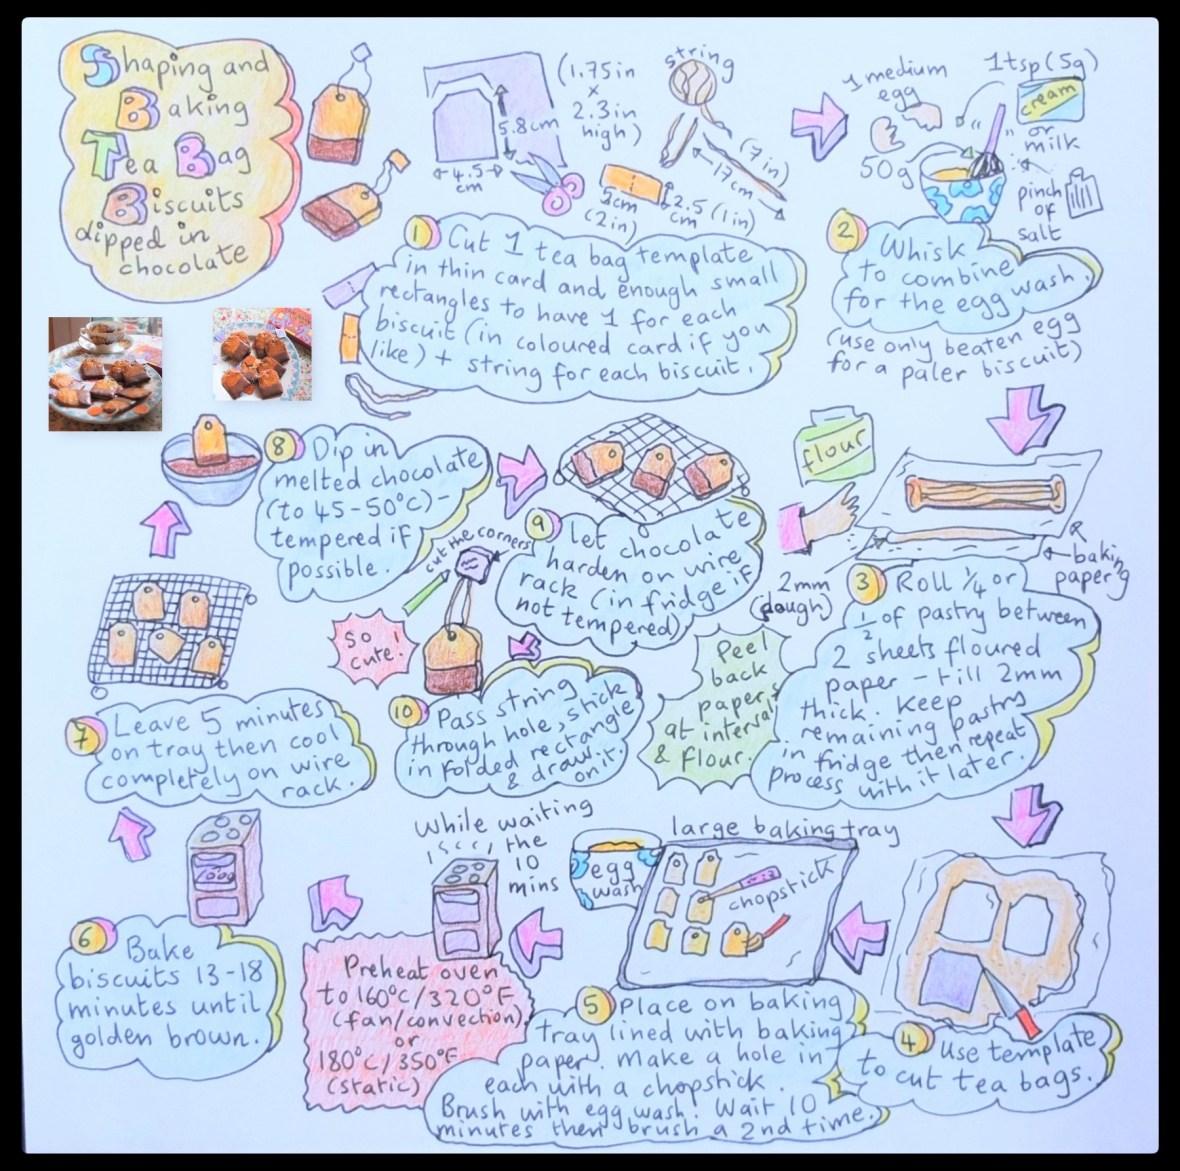 Shaping and
Baking
Tea Bag
Biscuits
dipped in
chocolate
5.8cm
4.5
cm
(1.75in
x
2.3in
high)
string
(7in)
17cm
5cm
(2in)
2.5 (1in)
cm
1 Cut 1 tea bag template
in thin card and enough small
rectangles to have 1 for each
biscuit (in coloured card if you
like) + string for each biscuit.
1 medium
egg
50g
1tsp (5g)
cream
or
milk
pinch
of
salt
2 Whisk
to combine
for the egg wash.
(use only beaten egg
for a paler biscuit)
flour
baking
paper
2mm
(dough)
3 Roll 1/4 or
1/2 of pastry between
2 sheets floured
paper - till 2mm
thick. Keep
remaining pastry
in fridge then repeat
process with it later.
Peel
back
papers
at intervals
& flour.
4 Use template
to cut tea bags.
large baking tray
egg
wash
chopstick
5 Place on baking
tray lined with baking
paper. Make a hole in
each with a chopstick.
Brush with egg wash. Wait 10
minutes then brush a 2nd time.
While waiting
the
10
mins
Preheat oven
to 160°C/320°F
(fan/convection)
or
180°C/350°F
(static)
6 Bake
biscuits 13-18
minutes until
golden brown.
7 Leave 5 minutes
on tray then cool
completely on wire
rack.
8 Dip in
melted chocolate
(to 45-50°C) -
tempered if
possible.
9 Let chocolate
harden on wire
rack (in fridge if
not tempered)
cut the corners
So
cute!
10 Pass string
through hole, stick
in folded rectangle
& draw
on it.